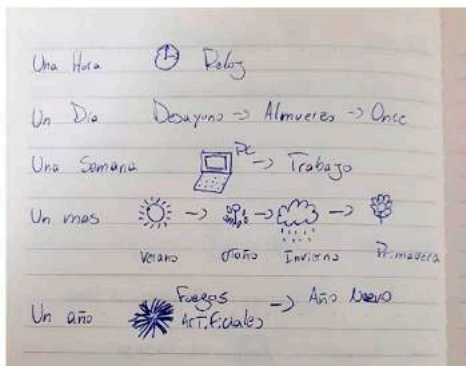 Una Hora Reloj
Un Dia Desayuno -> Almuerzo -> Once
Una Semana PC -> Trabajo
Un mes -> -> ->
Verano Otoño Invierno Primavera
Un año Fuegos Artificiales -> Año Nuevo